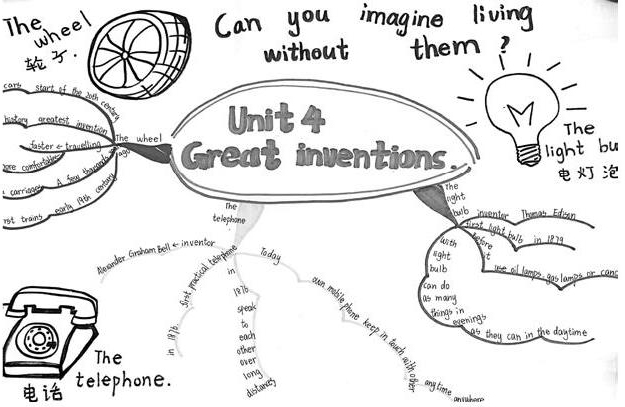 Can you imagine living
without them ?
The
wheel
轮子.
Unit 4
Great inventions.
The wheel
cars start of the 20th century
history greatest invention
faster ← travelling
more comfortable
carriages A few thousands ago
early 19th century
The
light
电灯泡
The
light
bulb
inventor Thomas Edison
first light bulb in 1879
before it
use oil lamps gas lamps or
with
light
bulb
can do
as many
things in
evenings
as they can in the daytime
The
telephone
Alexander Graham Bell ← inventor
first practical telephone
in 1876
in
1876
speak
to
each
other
over
long
distances
Today
own mobile phone keep in touch with other
anytime
anywhere
The
telephone.
电话